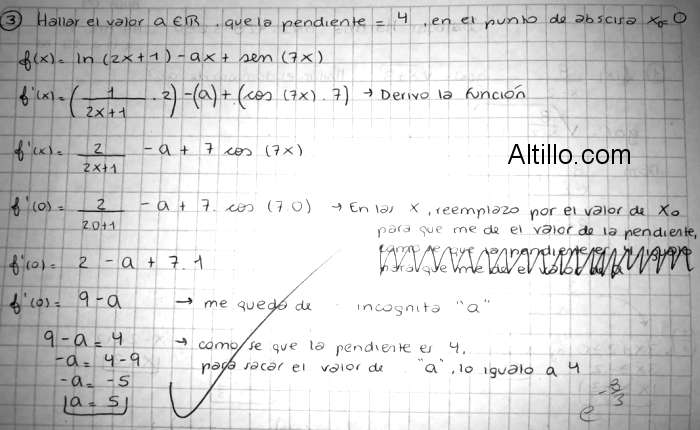 ③ Hallar el valor a ∈ ℝ, que la pendiente = 4, en el punto de abscisa x₀ = 0
f(x) = ln (2x+1) - ax + sen (7x)
f'(x) = (1/(2x+1) . 2) - (a) + (cos (7x) . 7) → Derivo la función
f'(x) = 2/(2x+1) - a + 7 cos (7x)
Altillo.com
f'(0) = 2/(2.0+1) - a + 7. cos (7.0) → En las x, reemplazo por el valor de x₀
para que me de el valor de la pendiente,
f'(0) = 2 - a + 7.1
f'(0) = 9 - a → me queda de incognita "a"
9 - a = 4 → como se que la pendiente es 4,
-a = 4 - 9 para sacar el valor de "a", lo igualo a 4
-a = -5
a = 5